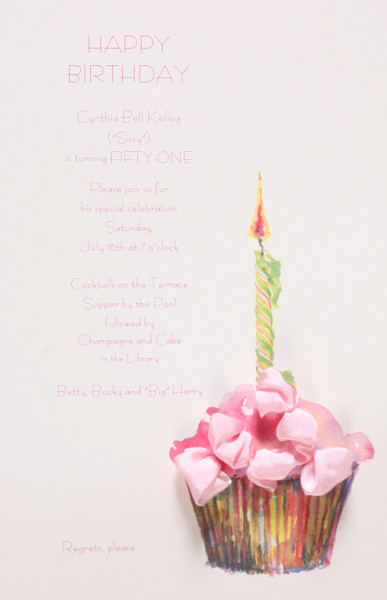 HAPPY
BIRTHDAY
Cynthia Bell Kellog
("Sissy")
is turning FIFTY-ONE
Please join us for
his special celebration
Saturday,
July 16th at 7 o'clock
Cocktails on the Terrace
Supper by the Pool
followed by
Champagne and Cake
in the Library
Betty, Bucky and "Big" Harry
Regrets, please